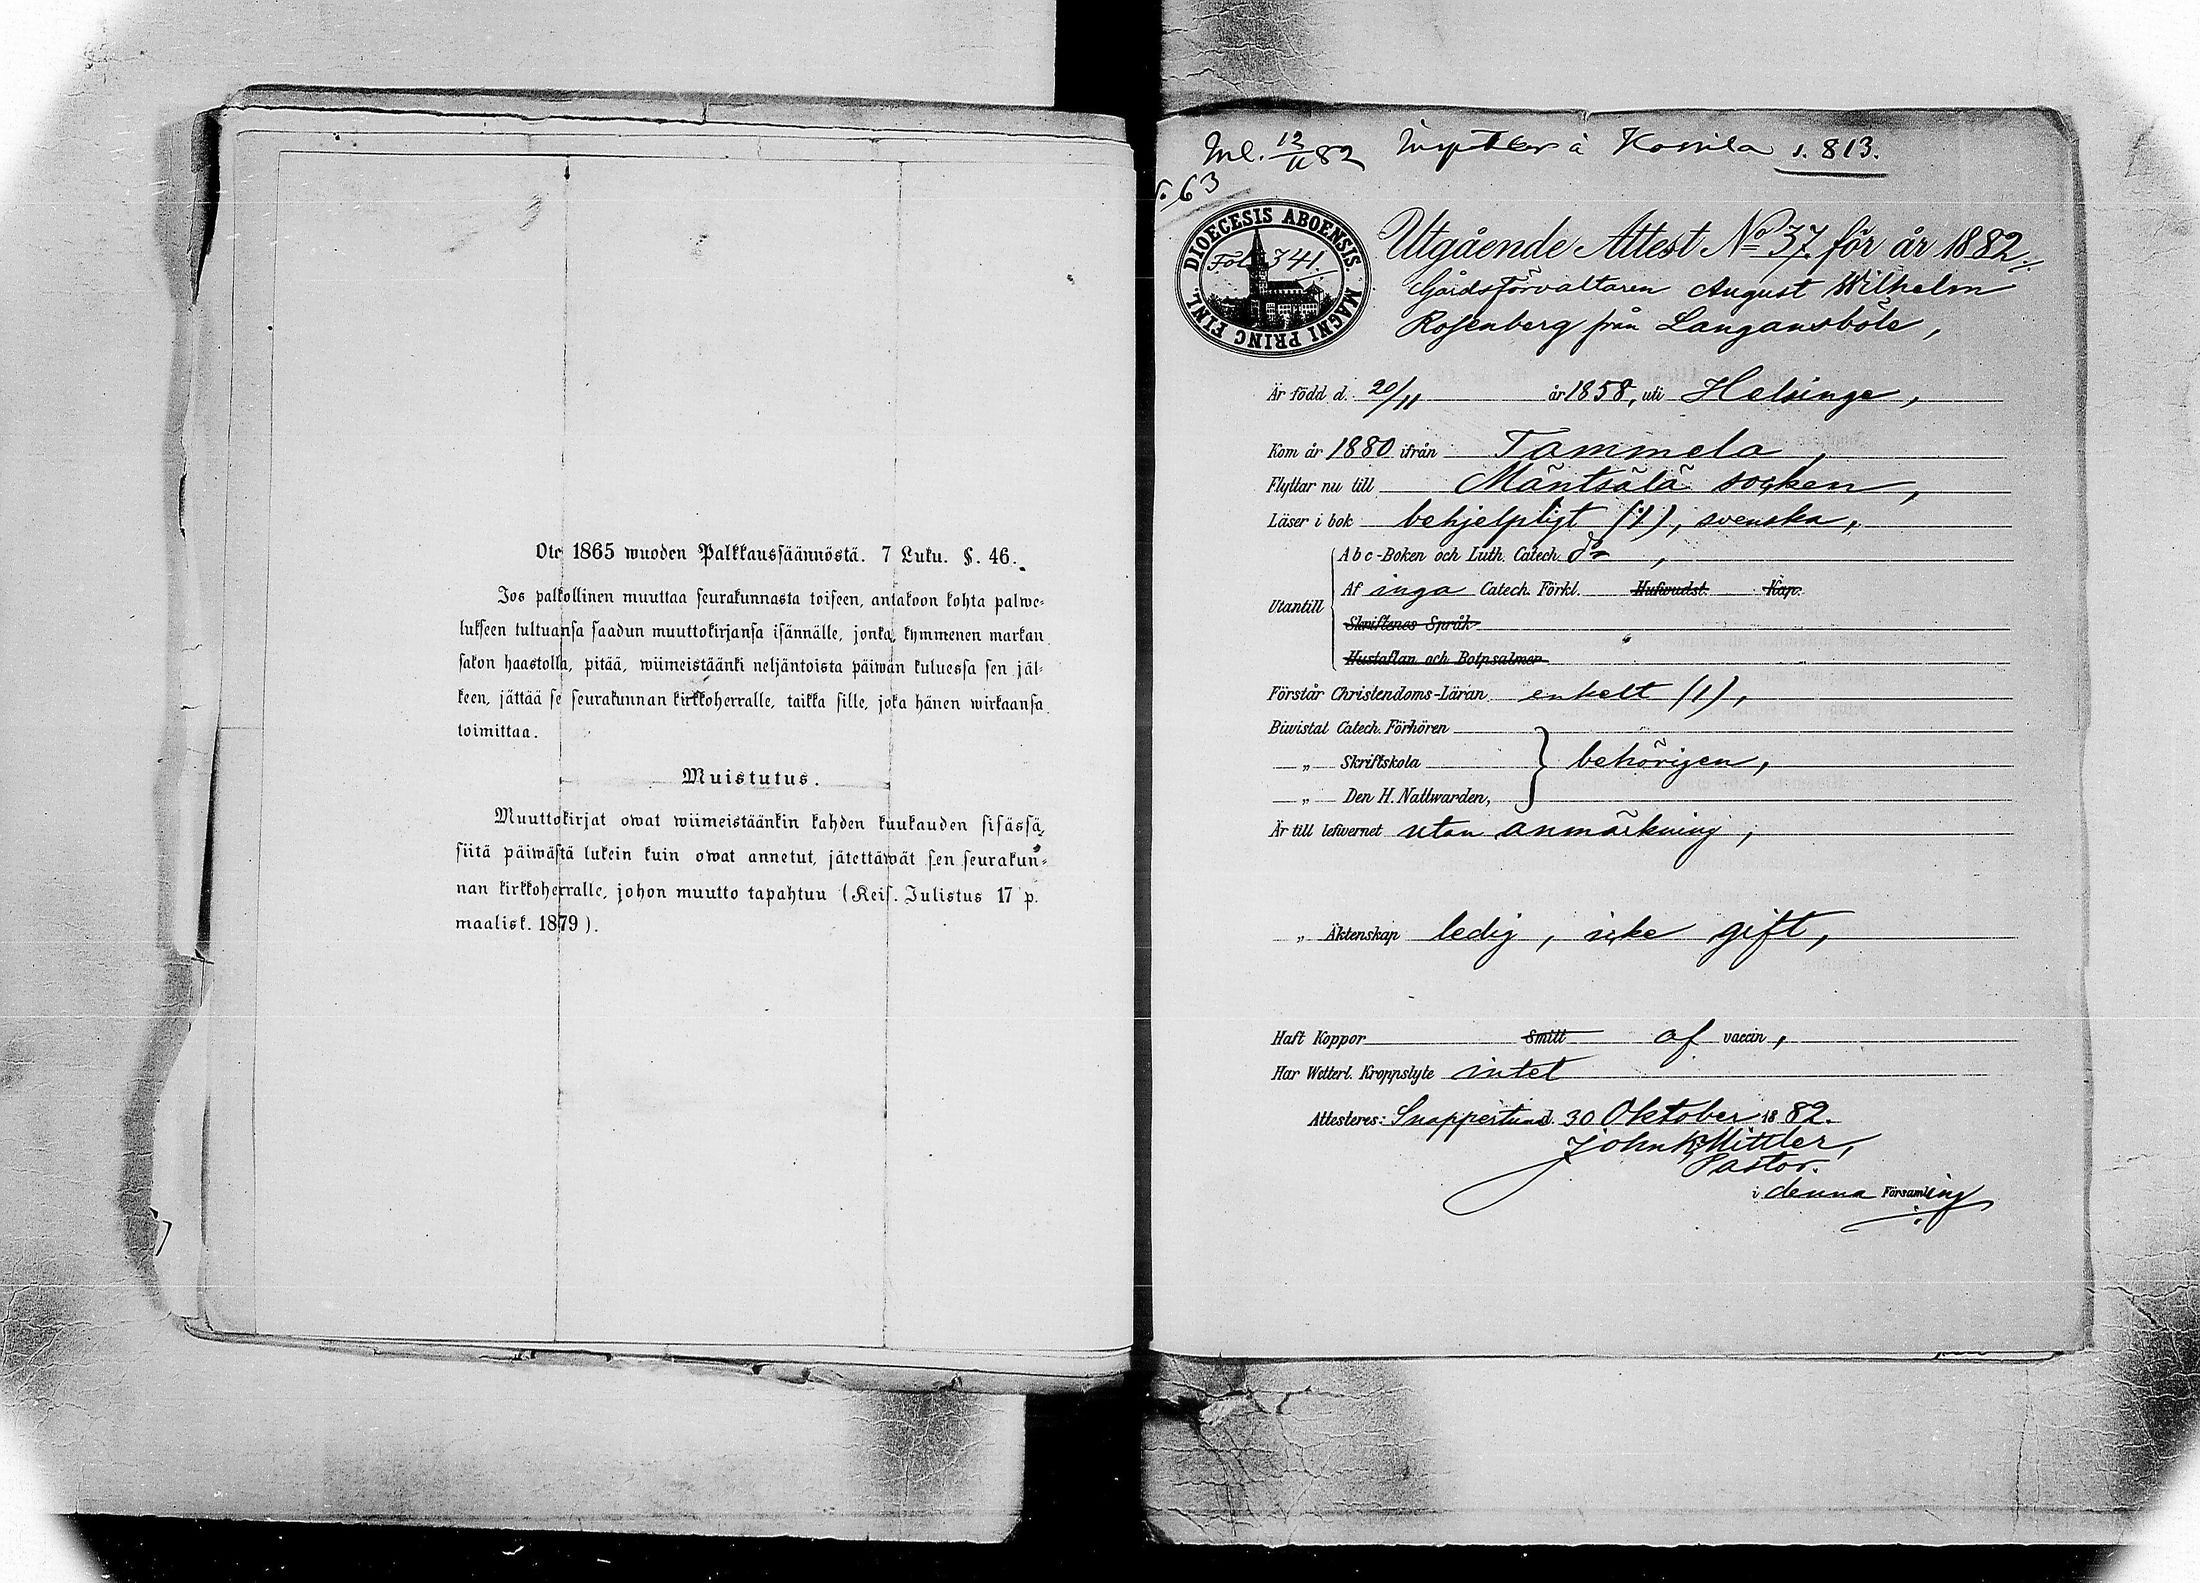 Ote 1865 wuoden Palkkaussäännöstä. 7 Luku. §. 46.
Jos palkollinen muuttaa seurakunnasta toiseen, antakoon kohta palwe-
lukseen tultuansa saadun muuttokirjansa isännälle, jonka, kymmenen markan
sakon haastolla, pitää, wiimeistäänki neljäntoista päiwän kuluessa sen jäl-
keen, jättää se seurakunnan kirkkoherralle, taikka sille, joka hänen wirkaansa
toimittaa.
Muistutus.
Muuttokirjat owat wiimeistäänkin kahden kuukauden sisässä,
siitä päiwästä lukein kuin owat annetut, jätettäwät sen seurakun-
nan kirkkoherralle, johon muutto tapahtuu (Keis. Julistus 17 p.
maalisk. 1879).
Inl. 12/11 82 s. 813.
63
DIOECESIS ABOENSIS. MAGNI PRINC FINL.
Fol. 341.
Utgående Attest No 37 för år 1882.
Gårdsförvaltaren August Wilhelm
Rosenberg från Langansböle,
Är född d. 20/11 år 1858, uti Helsinge,
Kom år 1880 ifrån Tammela,
Flyttar nu till Mäntsälä socken,
Läser i bok behjelpligt (1), svenska,
Utantill
Abc-Boken och Luth. Catech. do,
Af inga Catech. Förkl. Hufwudst. Kap.
Skriftenes Språk
Hustaflan och Botpsalmer
Förstår Christendoms-Läran enkelt (1),
Biwistat Catech. Förhören
„ Skriftskola behörigen,
„ Den H. Nattwarden,
Är till lefwernet utan anmärkning,
„ Äktenskap ledig, icke gift,
Haft Koppor Smitt af vaccin,
Har Wetterl. Kroppslyte intet
Attesteres: Snappertuna d. 30 Oktober 1882.
John Mittler,
Pastor.
i denna Församling